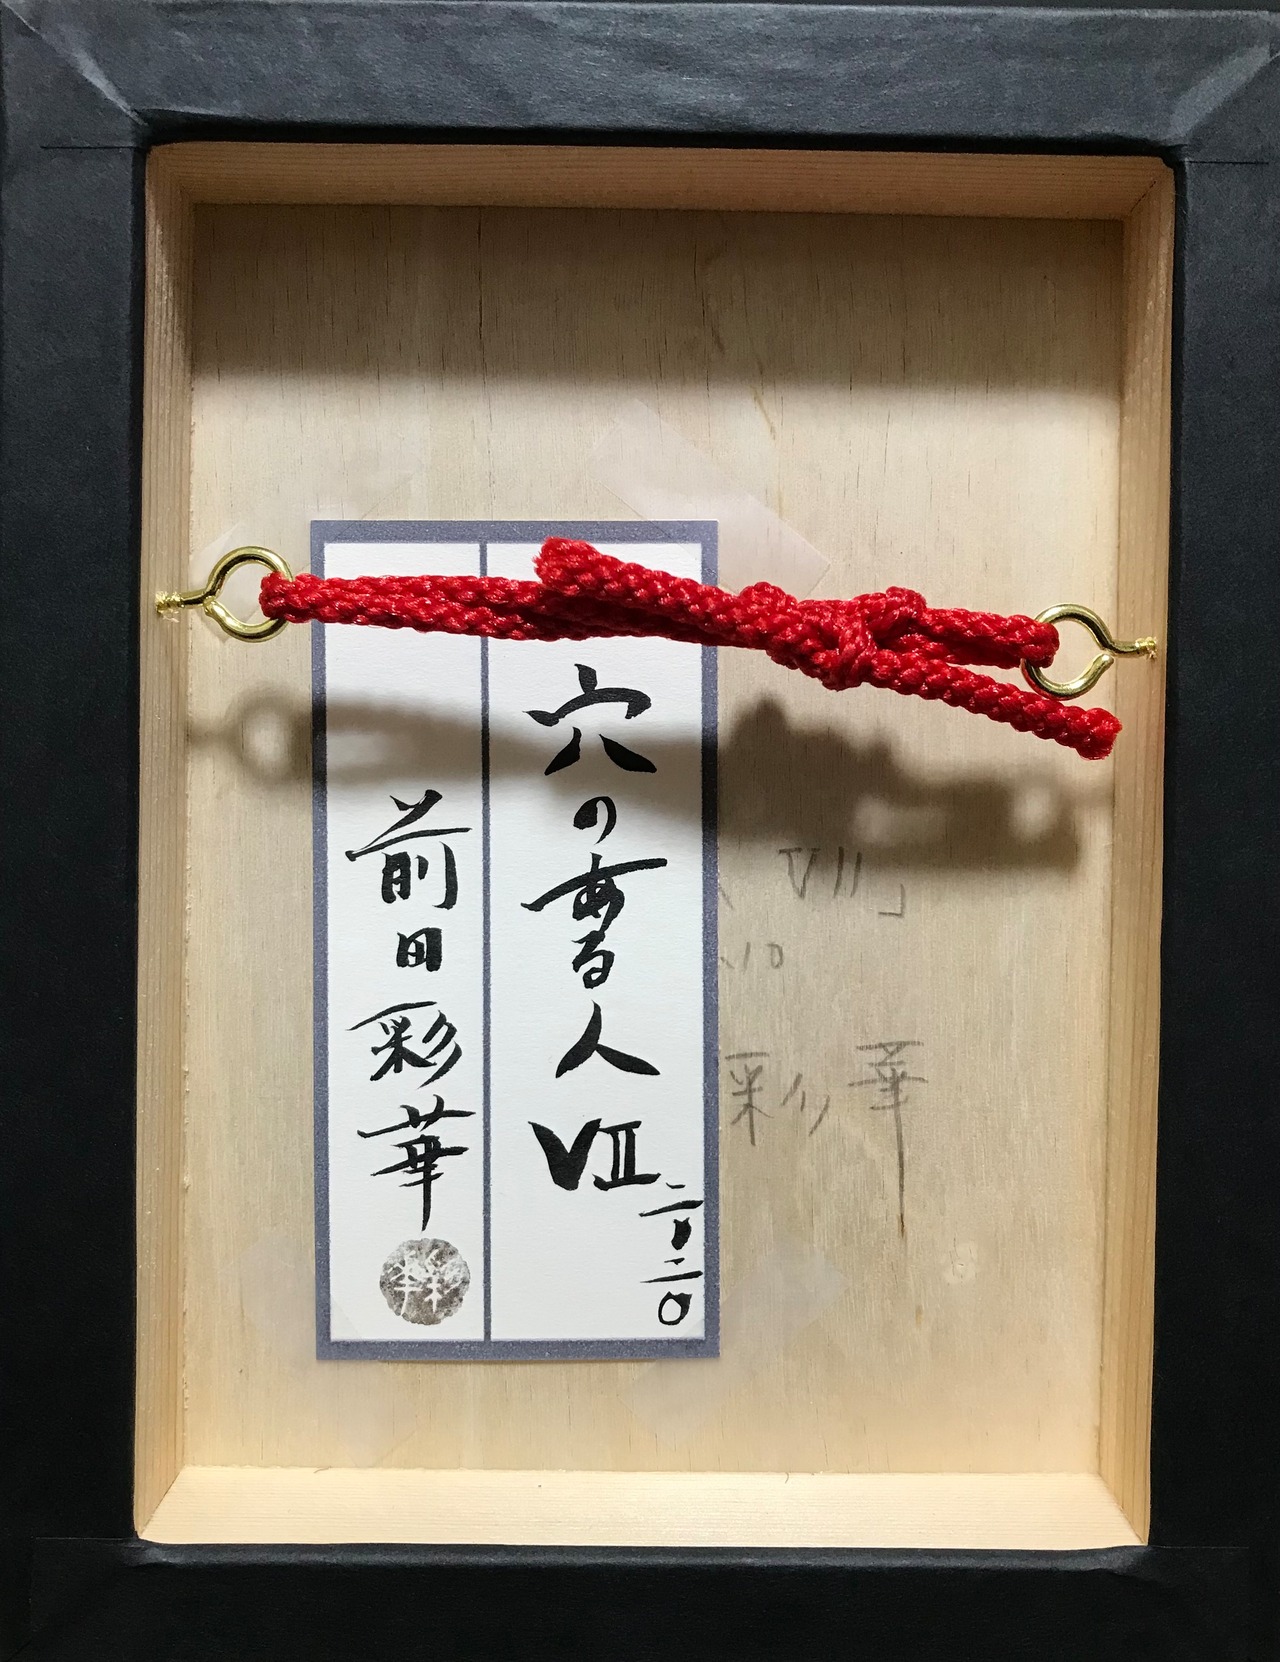 穴のある人 VII
二〇二〇
前田彩華
VII」
.10
彩華